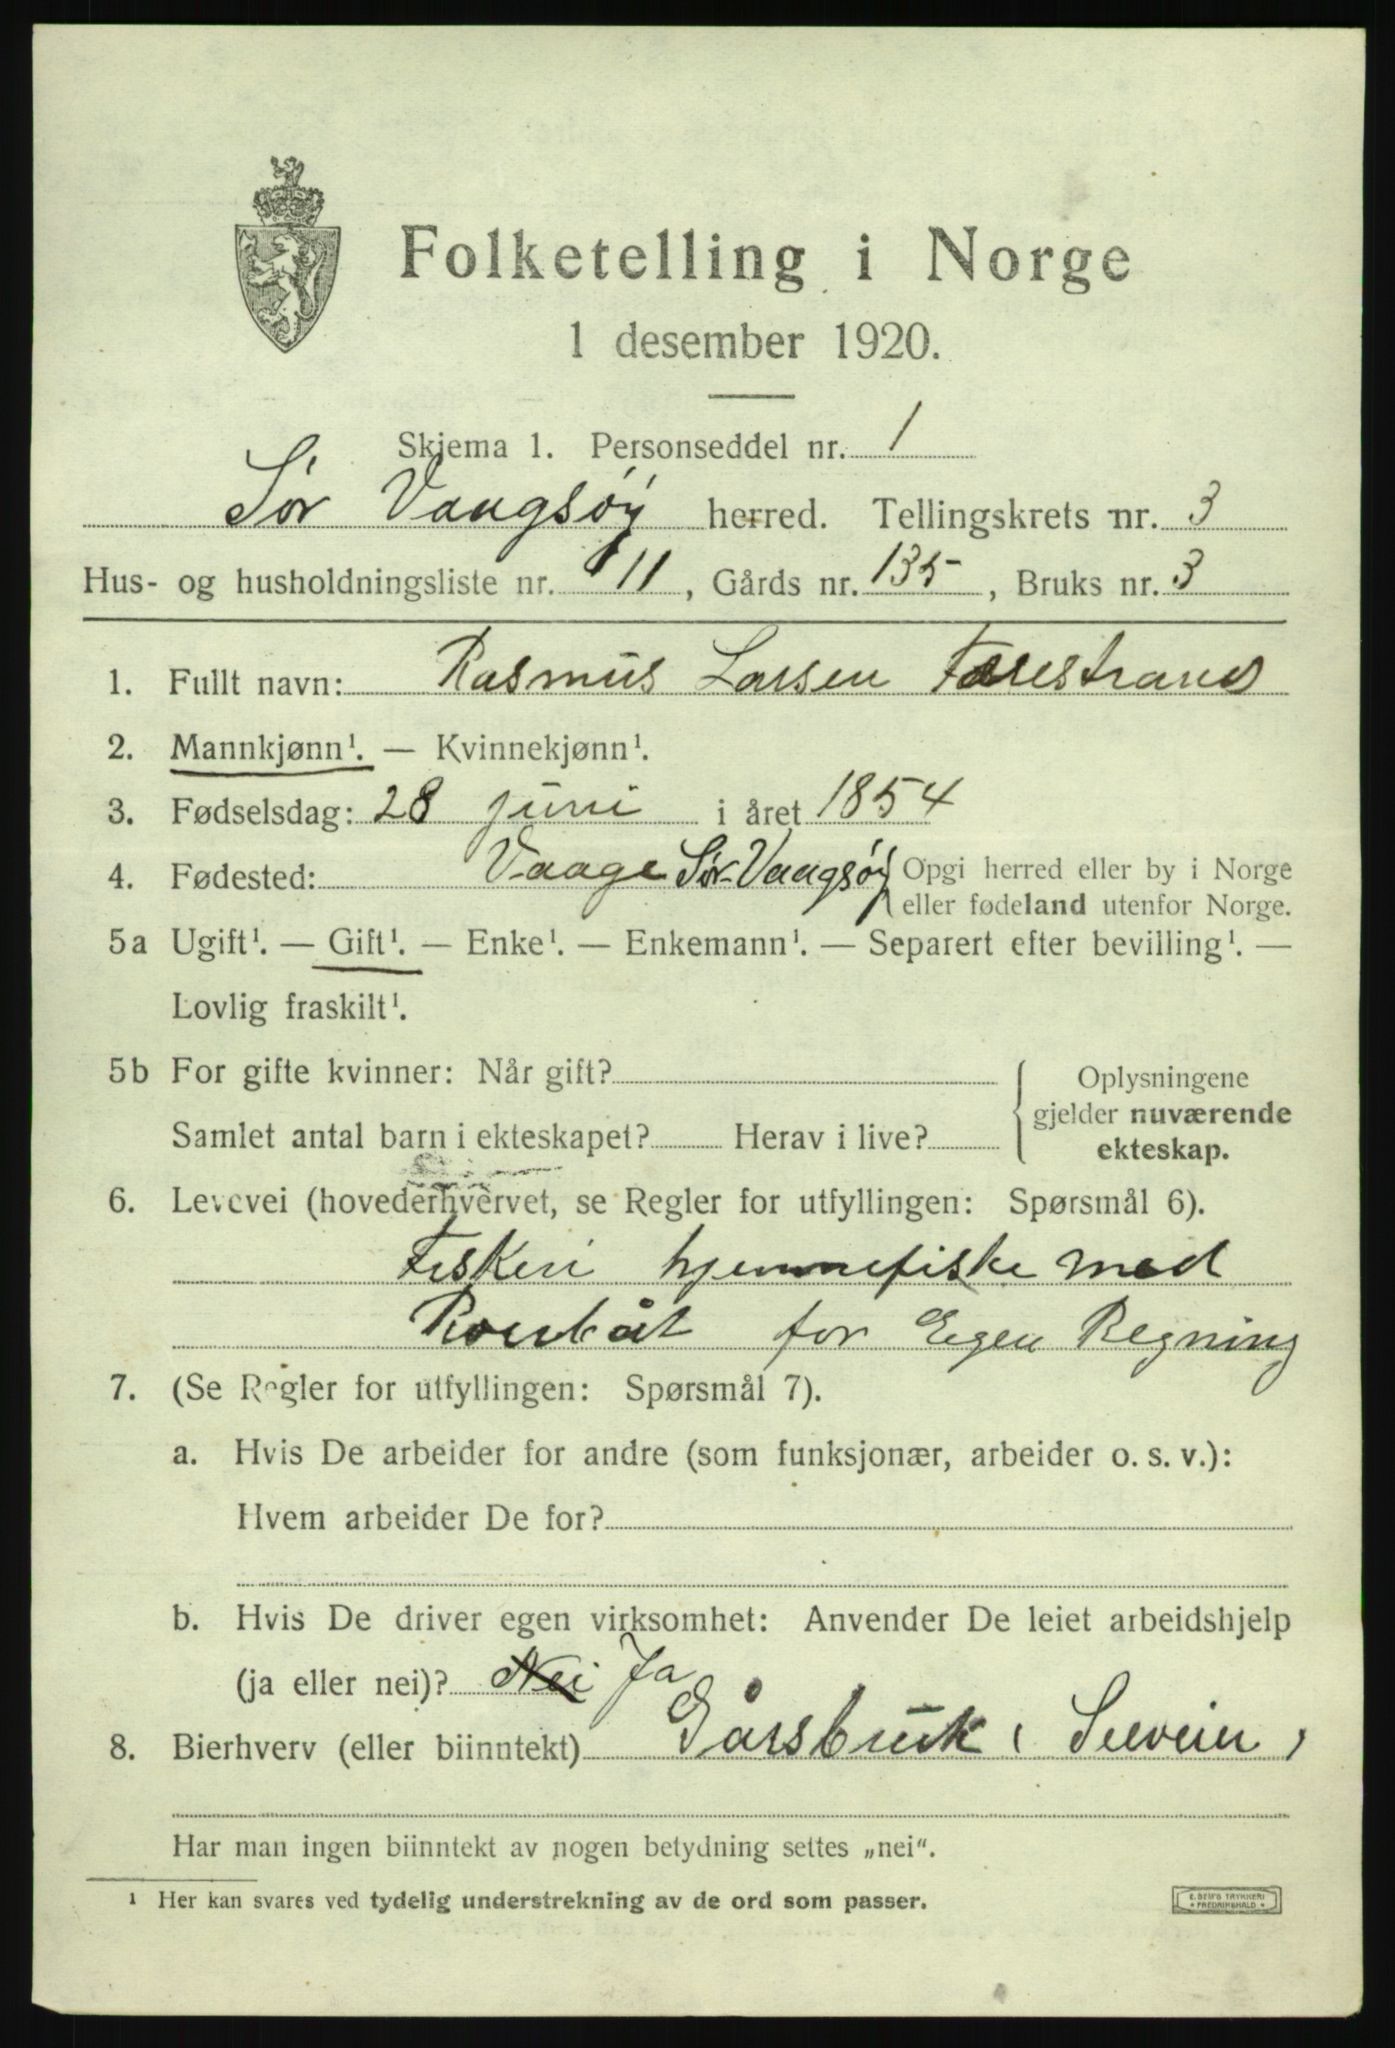 Folketelling i Norge
1 desember 1920.
Skjema 1. Personseddel nr. 1
Sør Vaagsøy herred. Tellingskrets nr. 3
Hus- og husholdningsliste nr. 11, Gårds nr. 135, Bruks nr. 3
1. Fullt navn: Rasmus Larsen
2. Mannkjønn¹. — Kvinnekjønn¹.
3. Fødselsdag: 28 juni i året 1854
4. Fødested: Vaage Sør Vaagsøy Opgi herred eller by i Norge
eller fødeland utenfor Norge.
5a Ugift¹. — Gift¹. — Enke¹. — Enkemann¹. — Separert efter bevilling¹. —
Lovlig fraskilt¹.
5b For gifte kvinner: Når gift?
Samlet antal barn i ekteskapet? Herav i live?
Oplysningene
gjelder nuværende
ekteskap.
6. Levevei (hovederhvervet, se Regler for utfyllingen: Spørsmål 6).
Fiskeri hjemmefiske med
Roerbåt for Egen Regning
7. (Se Regler for utfyllingen: Spørsmål 7).
a. Hvis De arbeider for andre (som funksjonær, arbeider o. s. v.):
Hvem arbeider De for?
b. Hvis De driver egen virksomhet: Anvender De leiet arbeidshjelp
(ja eller nei)? Nei Ja
8. Bierhverv (eller biinntekt) Gårsbruk, Selveier,
Har man ingen biinntekt av nogen betydning settes „nei“.
¹ Her kan svares ved tydelig understrekning av de ord som passer.
E. SEM'S TRYKKERI
* FREDRIKSHALD *